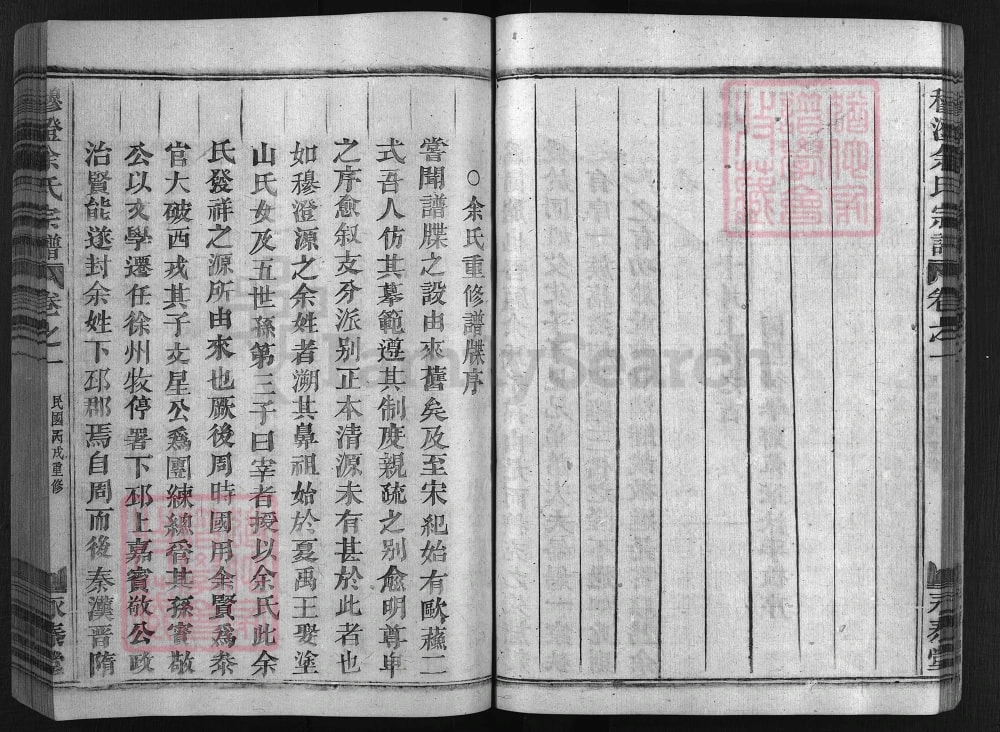 穆澄余氏宗譜
卷之一
永泰堂
○余氏重修譜牒序
嘗聞譜牒之設由來舊矣及至宋紀始有歐蘓二
式吾人仿其摹範遵其制度親疏之別愈明尊卑
之序愈叙支分派別正本清源未有甚於此者也
如穆澄源之余姓者溯其鼻祖始於夏禹王娶塗
山氏女及五世孫第三子曰宰者授以余氏此余
氏發祥之源所由來也厥後周時國用余賢爲泰
官大破西戎其子文星公爲團練總管其孫賓敬
公以文學遷任徐州牧停署下邳上嘉賓敬公政
治賢能遂封余姓下邳郡焉自周而後秦漢晋隋
穆澄余氏宗譜
卷之一
民國丙戌重修
永泰堂
FamilySearch